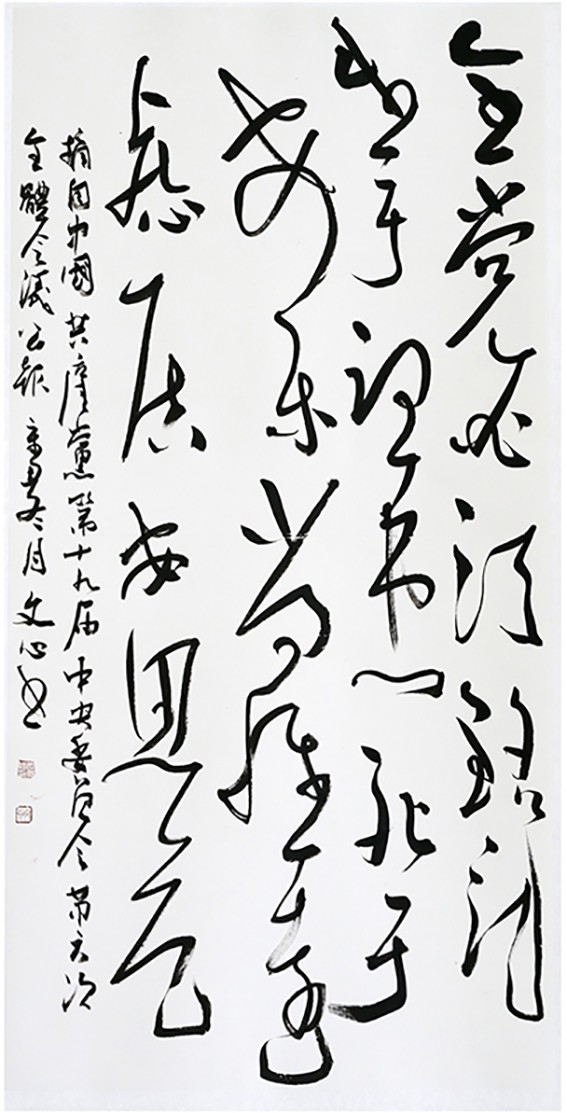 全党必须铭记
生于忧患死于
安乐常怀远
虑居安思危
摘自中國共産黨第十九届中央委员会第六次
全體会議公報 辛丑冬月 文心书